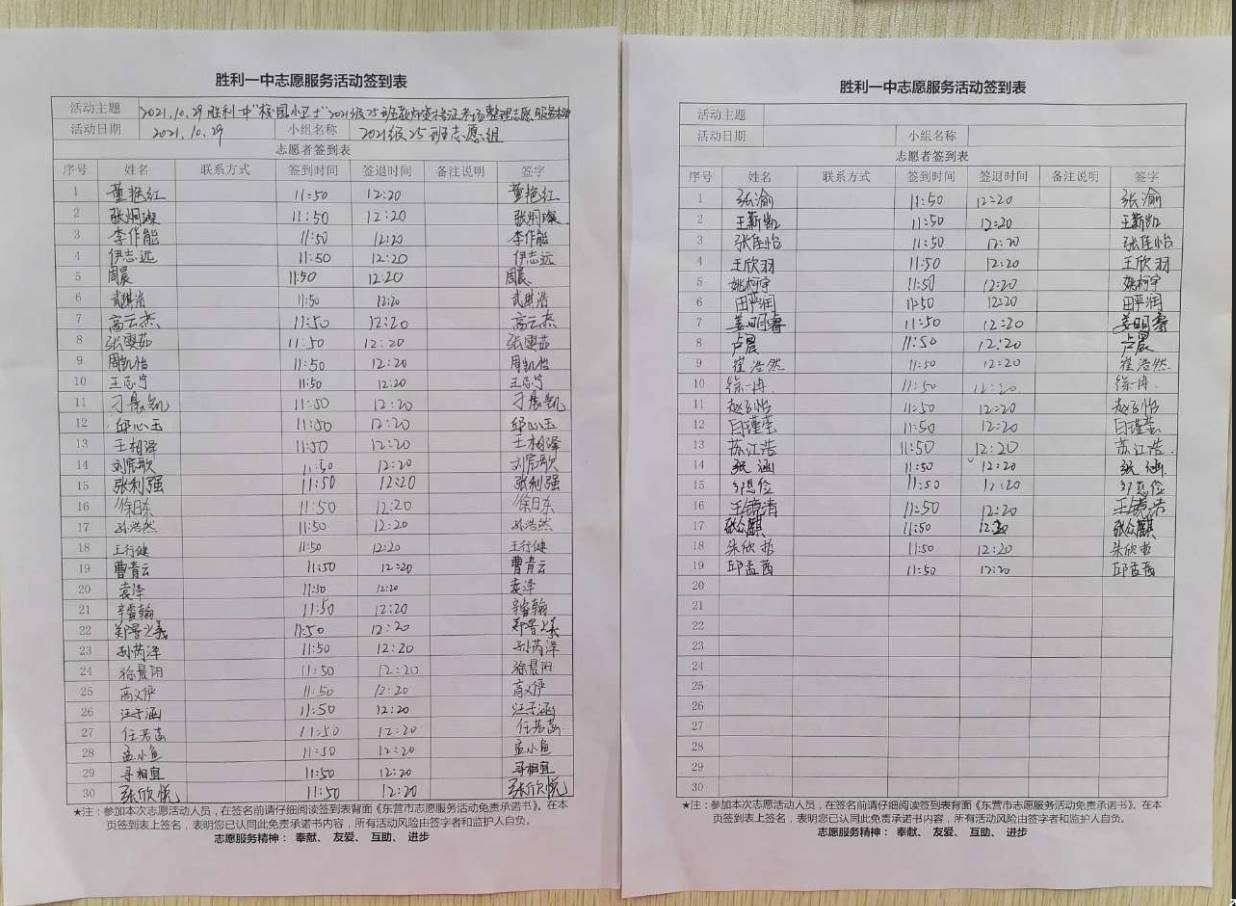 胜利一中志愿服务活动签到表
活动主题 2021.10.29胜利一中"校园小卫士"2021级25班教师资格证考场整理志愿服务活动
活动日期 2021.10.29 小组名称 2021级25班志愿组
志愿者签到表
序号 姓名 联系方式 签到时间 签退时间 备注说明 签字
1 董艳红 11:50 12:20 董艳红
2 张炯璨 11:50 12:20 张炯璨
3 李作能 11:50 12:20 李作能
4 伊志远 11:50 12:20 伊志远
5 周晨 11:50 12:20 周晨
6 武祺浩 11:50 12:20 武祺浩
7 高云杰 11:50 12:20 高云杰
8 张雯茹 11:50 12:20 张雯茹
9 周凯怡 11:50 12:20 周凯怡
10 王志宁 11:50 12:20 王志宁
11 刁晨凯 11:50 12:20 刁晨凯
12 邱心玉 11:50 12:20 邱心玉
13 王相泽 11:50 12:20 王相泽
14 刘宪歌 11:50 12:20 刘宪歌
15 张利强 11:50 12:20 张利强
16 徐日东 11:50 12:20 徐日东
17 孙浩然 11:50 12:20 孙浩然
18 王行健 11:50 12:20 王行健
19 曹青云 11:50 12:20 曹青云
20 袁泽 11:50 12:20 袁泽
21 辛睿翰 11:50 12:20 辛睿翰
22 11:50 12:20
23 孙芮泽 11:50 12:20 孙芮泽
24 徐晨阳 11:50 12:20 徐晨阳
25 高义俨 11:50 12:20 高义俨
26 汪子涵 11:50 12:20 汪子涵
27 任若菡 11:50 12:20 任若菡
28 孟小鱼 11:50 12:20 孟小鱼
29 寻相宜 11:50 12:20 寻相宜
30 张欣悦 11:50 12:20 张欣悦
★注：参加本次志愿活动人员，在签名前请仔细阅读签到表背面《东营市志愿服务活动免责承诺书》。在本
页签到表上签名，表明您已认同此免责承诺书内容，所有活动风险由签字者和监护人自负。
志愿服务精神： 奉献、 友爱、 互助、 进步
胜利一中志愿服务活动签到表
活动主题
活动日期 小组名称
志愿者签到表
序号 姓名 联系方式 签到时间 签退时间 备注说明 签字
1 张渝 11:50 12:20 张渝
2 王新凯 11:50 12:20 王新凯
3 张佳怡 11:50 12:20 张佳怡
4 王欣羽 11:50 12:20 王欣羽
5 姚柯宇 11:50 12:20 姚柯宇
6 田严润 11:50 12:20 田严润
7 姜明睿 11:50 12:20 姜明睿
8 卢晨 11:50 12:20 卢晨
9 崔浩然 11:50 12:20 崔浩然
10 徐一冉 11:50 12:20 徐一冉
11 赵子怡 11:50 12:20 赵子怡
12 白瑾莹 11:50 12:20 白瑾莹
13 苏江浩 11:50 12:20 苏江浩
14 张涵 11:50 12:20 张涵
15 11:50 12:20
16 11:50 12:20
17 张众麒 11:50 12:20 张众麒
18 朱欣哲 11:50 12:20 朱欣哲
19 邱孟茜 11:50 12:20 邱孟茜
20
21
22
23
24
25
26
27
28
29
30
★注：参加本次志愿活动人员，在签名前请仔细阅读签到表背面《东营市志愿服务活动免责承诺书》。在本
页签到表上签名，表明您已认同此免责承诺书内容，所有活动风险由签字者和监护人自负。
志愿服务精神： 奉献、 友爱、 互助、 进步